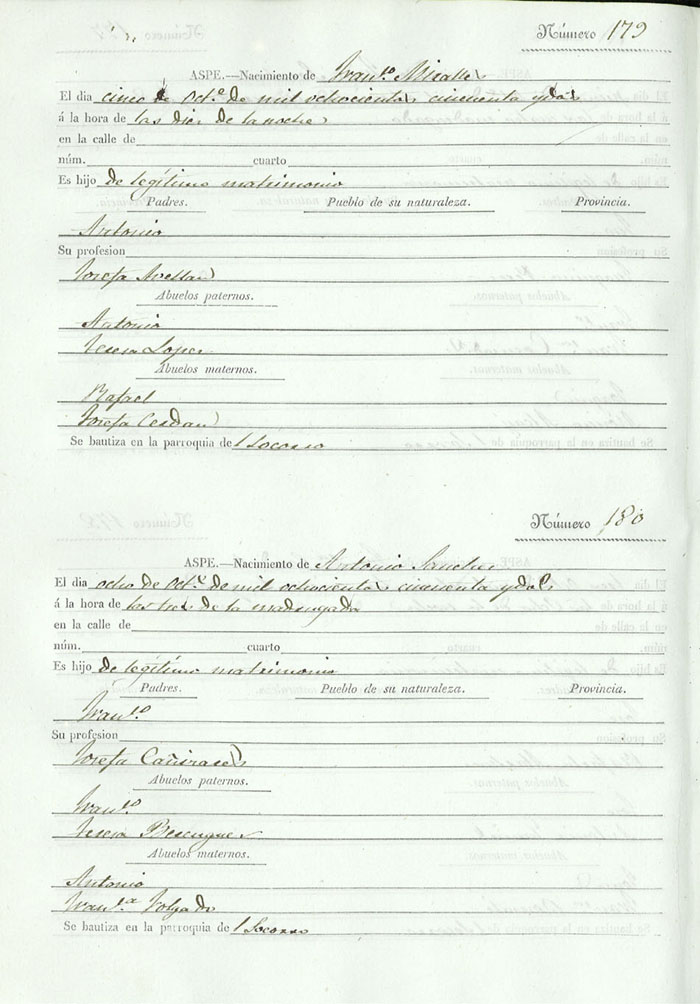 Número 179
ASPE.—Nacimiento de Fran.co Miralles
El dia cinco de Oct.e de mil ochocientos cincuenta y dos
á la hora de las diez de la noche
en la calle de
núm. cuarto
Es hijo de legítimo matrimonio
Padres. Pueblo de su naturaleza. Provincia.
Antonio
Su profesion
Josefa Avellan
Abuelos paternos.
Antonio
Teresa Lopez
Abuelos maternos.
Rafael
Josefa Cerdan
Se bautiza en la parroquia de l Socorro
Número 180
ASPE.—Nacimiento de Antonio Sanchez
El dia ocho de Oct.e de mil ochocientos cincuenta y dos
á la hora de las tres de la madrugada
en la calle de
núm. cuarto
Es hijo de legítimo matrimonio
Padres. Pueblo de su naturaleza. Provincia.
Fran.co
Su profesion
Josefa Cañizares
Abuelos paternos.
Fran.co
Teresa
Abuelos maternos.
Antonio
Fran.ca
Se bautiza en la parroquia de l Socorro